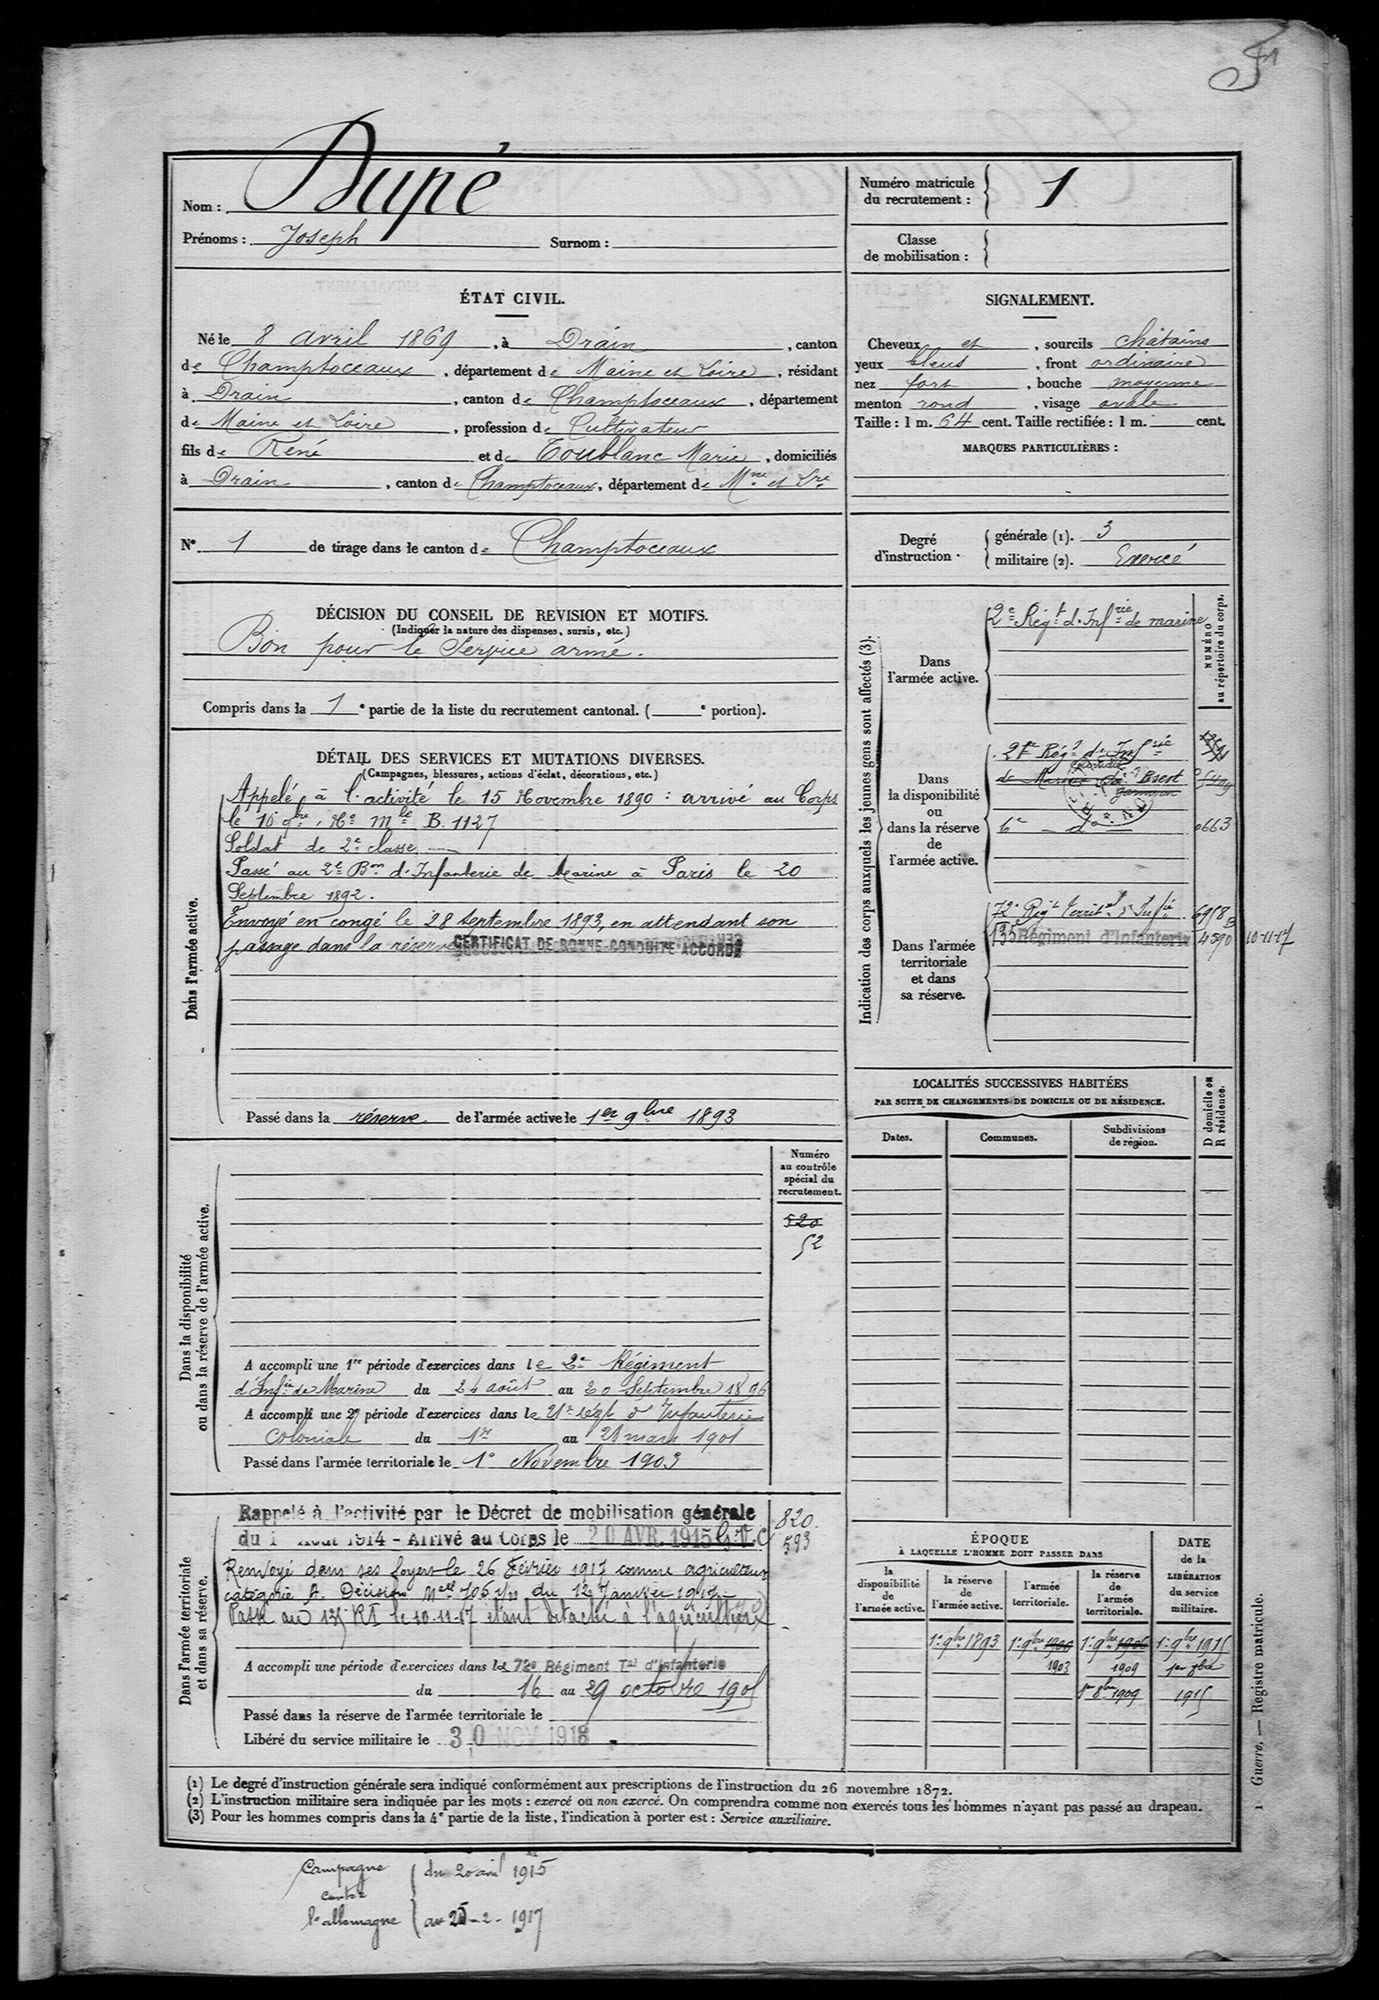 Nom : Dupé
Prénoms : Joseph Surnom :
Numéro matricule du recrutement : 1
Classe de mobilisation :
ÉTAT CIVIL.
Né le 8 avril 1869, à Drain, canton
de Champtoceaux, département de Maine et Loire, résidant
à Drain, canton de Champtoceaux, département
de Maine et Loire, profession de Cultivateur
fils de René et de Toublanc Marie, domiciliés
à Drain, canton de Champtoceaux, département de Mne et Lre
N° 1 de tirage dans le canton de Champtoceaux
DÉCISION DU CONSEIL DE REVISION ET MOTIFS.
(Indiquer la nature des dispenses, sursis, etc.)
Bon pour le Service armé.
Compris dans la 1e partie de la liste du recrutement cantonal. ( e portion).
DÉTAIL DES SERVICES ET MUTATIONS DIVERSES.
(Campagnes, blessures, actions d'éclat, décorations, etc.)
Dans l'armée active.
Appelé à l'activité le 15 Novembre 1890 : arrivé au Corps
le 16 9bre. No Mle B. 1127
Soldat de 2e classe
Passé au 2e Bon d'Infanterie de Marine à Paris le 20
Septembre 1892.
Envoyé en congé le 28 septembre 1893, en attendant son
passage dans la réserve CERTIFICAT DE BONNE CONDUITE ACCORDÉ
Passé dans la réserve de l'armée active le 1er 9bre 1893
Dans la disponibilité
ou dans la réserve de l'armée active.
Numéro
au contrôle
spécial du
recrutement.
520
52
A accompli une 1re période d'exercices dans le 2e Régiment
d'Infie de Marine du 24 août au 20 Septembre 1896
A accompli une 2e période d'exercices dans le 21e régt d'Infanterie
Coloniale du 1er au 28 mars 1901
Passé dans l'armée territoriale le 1er Novembre 1903
Dans l'armée territoriale
et dans sa réserve.
Rappelé à l'activité par le Décret de mobilisation générale
du 1 Août 1914 - Arrivé au Corps le 20 AVR. 1915 G.V.C
820
593
Renvoyé dans ses foyers le 26 Février 1917 comme agriculteur
catégorie A. Décision Mlle 706 du 12 Janvier 1917
Passé au 135 RI le 10-11-17 étant détaché à l'agriculture
A accompli une période d'exercices dans le 72e Régiment Tal d'Infanterie
du 16 au 29 octobre 1905
Passé dans la réserve de l'armée territoriale le
Libéré du service militaire le 30 NOV 1918
SIGNALEMENT.
Cheveux et, sourcils châtains
yeux bleus, front ordinaire
nez fort, bouche moyenne
menton rond, visage ovale
Taille : 1 m. 64 cent. Taille rectifiée : 1 m. cent.
MARQUES PARTICULIÈRES :
Degré d'instruction.
générale (1). 3
militaire (2). Exercé
Indication des corps auxquels les jeunes gens sont affectés (3).
NUMÉRO
au répertoire du corps.
Dans
l'armée active.
2e Régt d'Infrie de marine
Dans
la disponibilité
ou
dans la réserve
de
l'armée active.
2e Régt d'Infrie
de Marine
6e do 0663
Dans l'armée
territoriale
et dans
sa réserve.
72e Régt Territal d'Infie 6958
135e Régiment d'Infanterie 4590 10-11-17
LOCALITÉS SUCCESSIVES HABITÉES
PAR SUITE DE CHANGEMENTS DE DOMICILE OU DE RÉSIDENCE.
Dates. Communes. Subdivisions de région. D domicile ou R résidence.
ÉPOQUE
À LAQUELLE L'HOMME DOIT PASSER DANS
DATE
de la
LIBÉRATION
du service
militaire.
la disponibilité de l'armée active. la réserve de l'armée active. l'armée territoriale. la réserve de l'armée territoriale.
1er 9bre 1893 1er 9bre 1900 1er 9bre 1906 1er 9bre 1915
1903 1909 1er 8bre
1er 8bre 1909 1915
(1) Le degré d'instruction générale sera indiqué conformément aux prescriptions de l'instruction du 26 novembre 1872.
(2) L'instruction militaire sera indiquée par les mots : exercé ou non exercé. On comprendra comme non exercés tous les hommes n'ayant pas passé au drapeau.
(3) Pour les hommes compris dans la 4e partie de la liste, l'indication à porter est : Service auxiliaire.
1 Guerre. — Registre matricule.
Campagne du 20 avril 1915
contre
l'allemagne au 25-2-1917